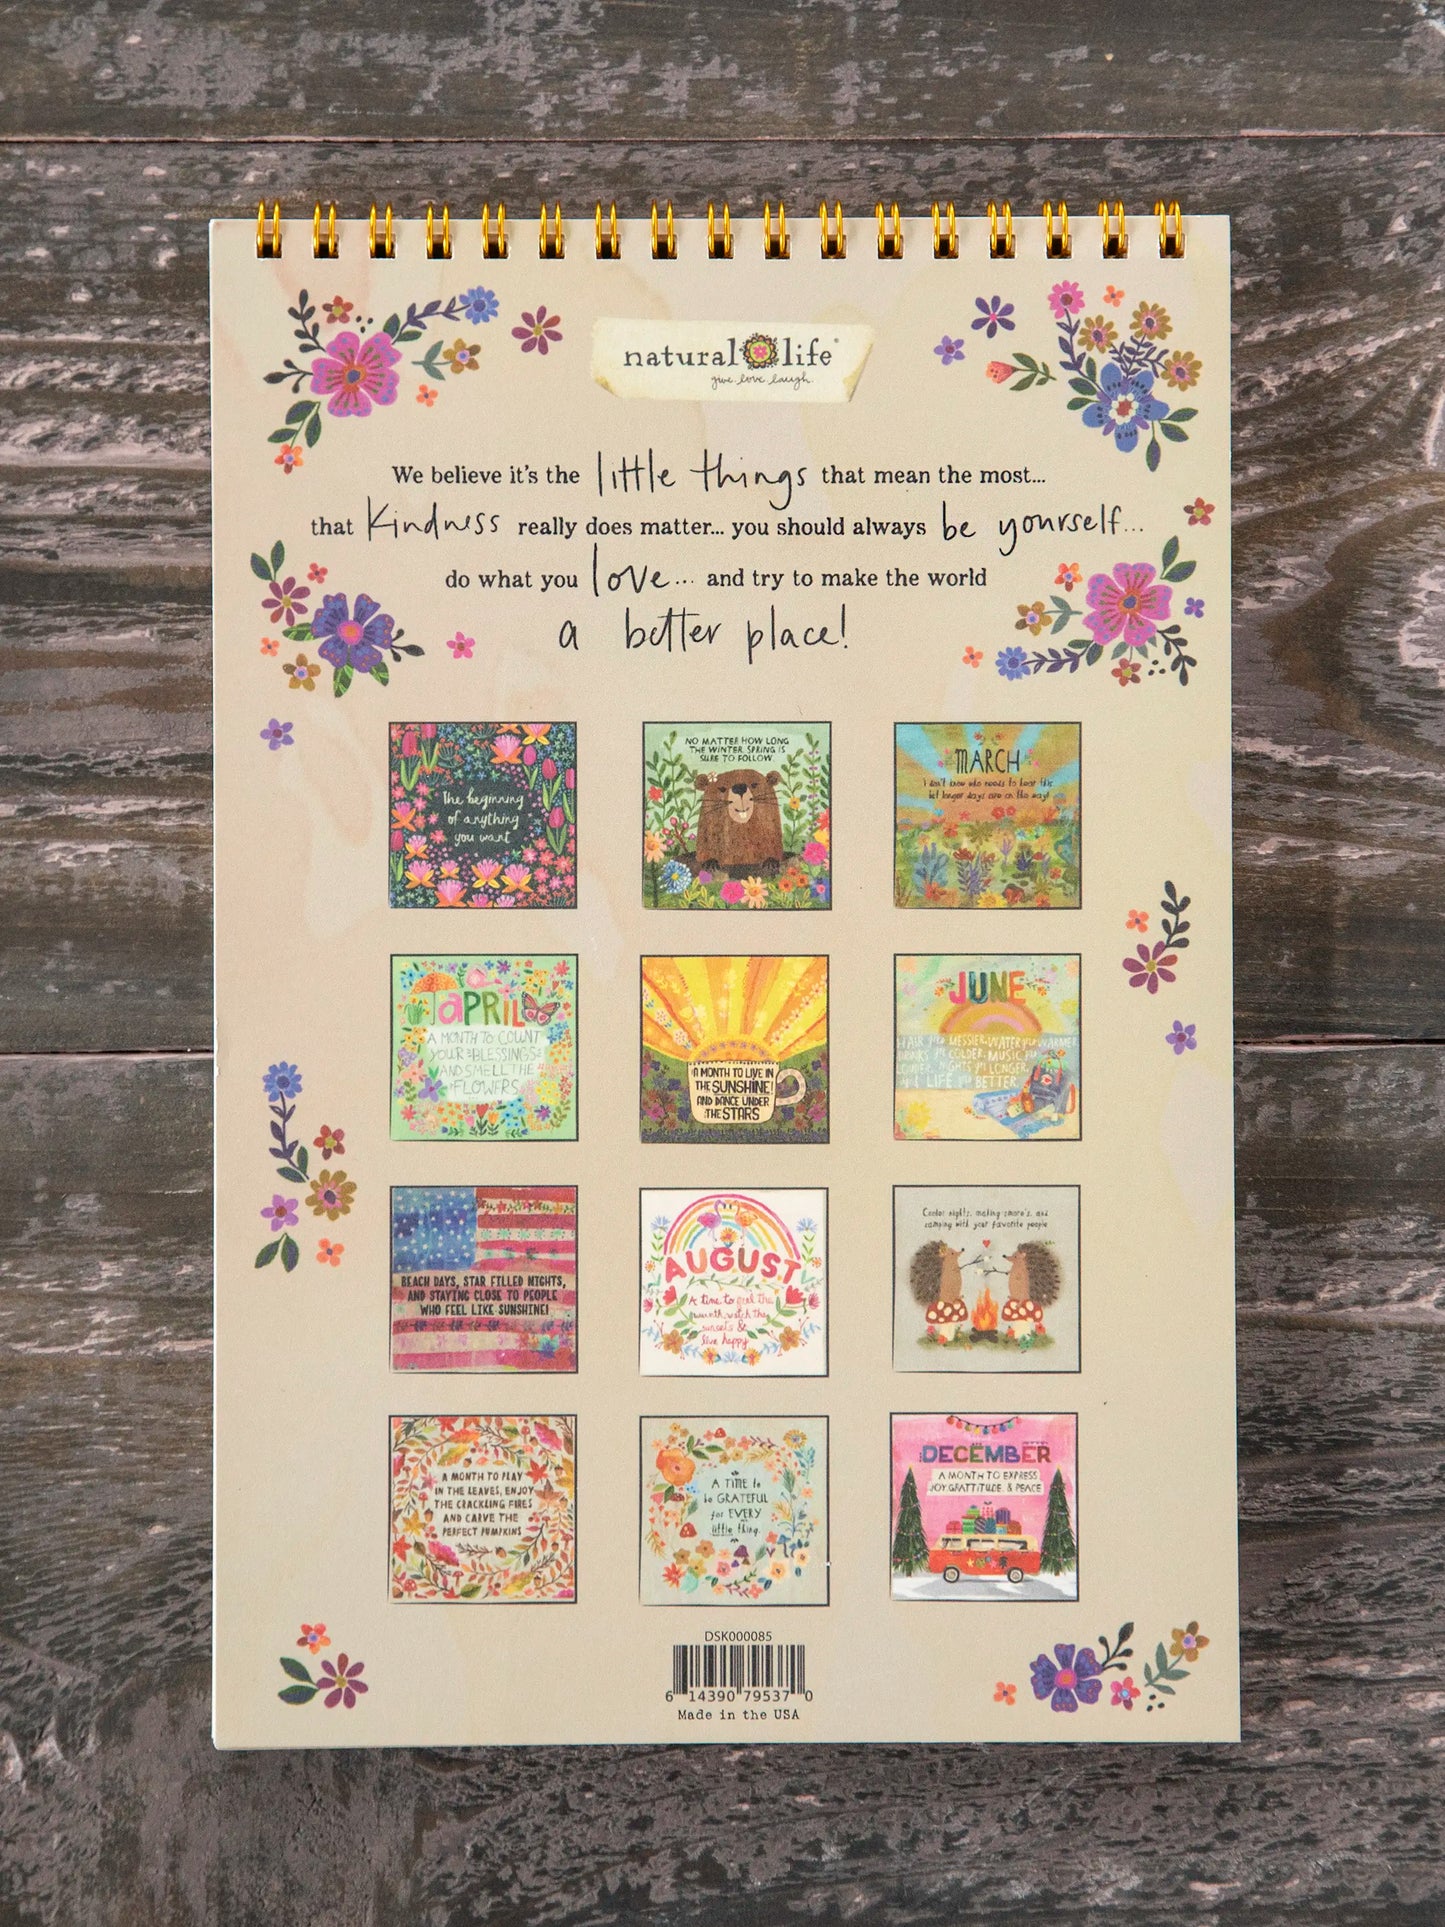 natural life®
give. love. laugh.
We believe it's the little things that mean the most...
that Kindness really does matter... you should always be yourself...
do what you love... and try to make the world
a better place!
the beginning
of anything
you want
NO MATTER HOW LONG
THE WINTER, SPRING IS
SURE TO FOLLOW.
MARCH
I don't know who needs to hear this
but longer days are on the way!
APRIL
A MONTH TO COUNT
YOUR BLESSINGS
AND SMELL THE
FLOWERS
A MONTH TO LIVE IN
THE SUNSHINE!
AND DANCE UNDER
THE STARS
JUNE
HAIR MESSIER. WATER WARMER.
DRINKS COLDER. MUSIC
LOUDER. NIGHTS LONGER.
LIFE BETTER.
BEACH DAYS, STAR FILLED NIGHTS,
AND STAYING CLOSE TO PEOPLE
WHO FEEL LIKE SUNSHINE!
AUGUST
A time to feel the
warmth, watch the
sunsets &
live happy
Cooler nights, making smore's, and
camping with your favorite people
A MONTH TO PLAY
IN THE LEAVES, ENJOY
THE CRACKLING FIRES
AND CARVE THE
PERFECT PUMPKINS
A TIME to
be GRATEFUL
for EVERY
little thing.
DECEMBER
A MONTH TO EXPRESS
JOY, GRATTITUDE, & PEACE
DSK000085
6 14390 79537 0
Made in the USA